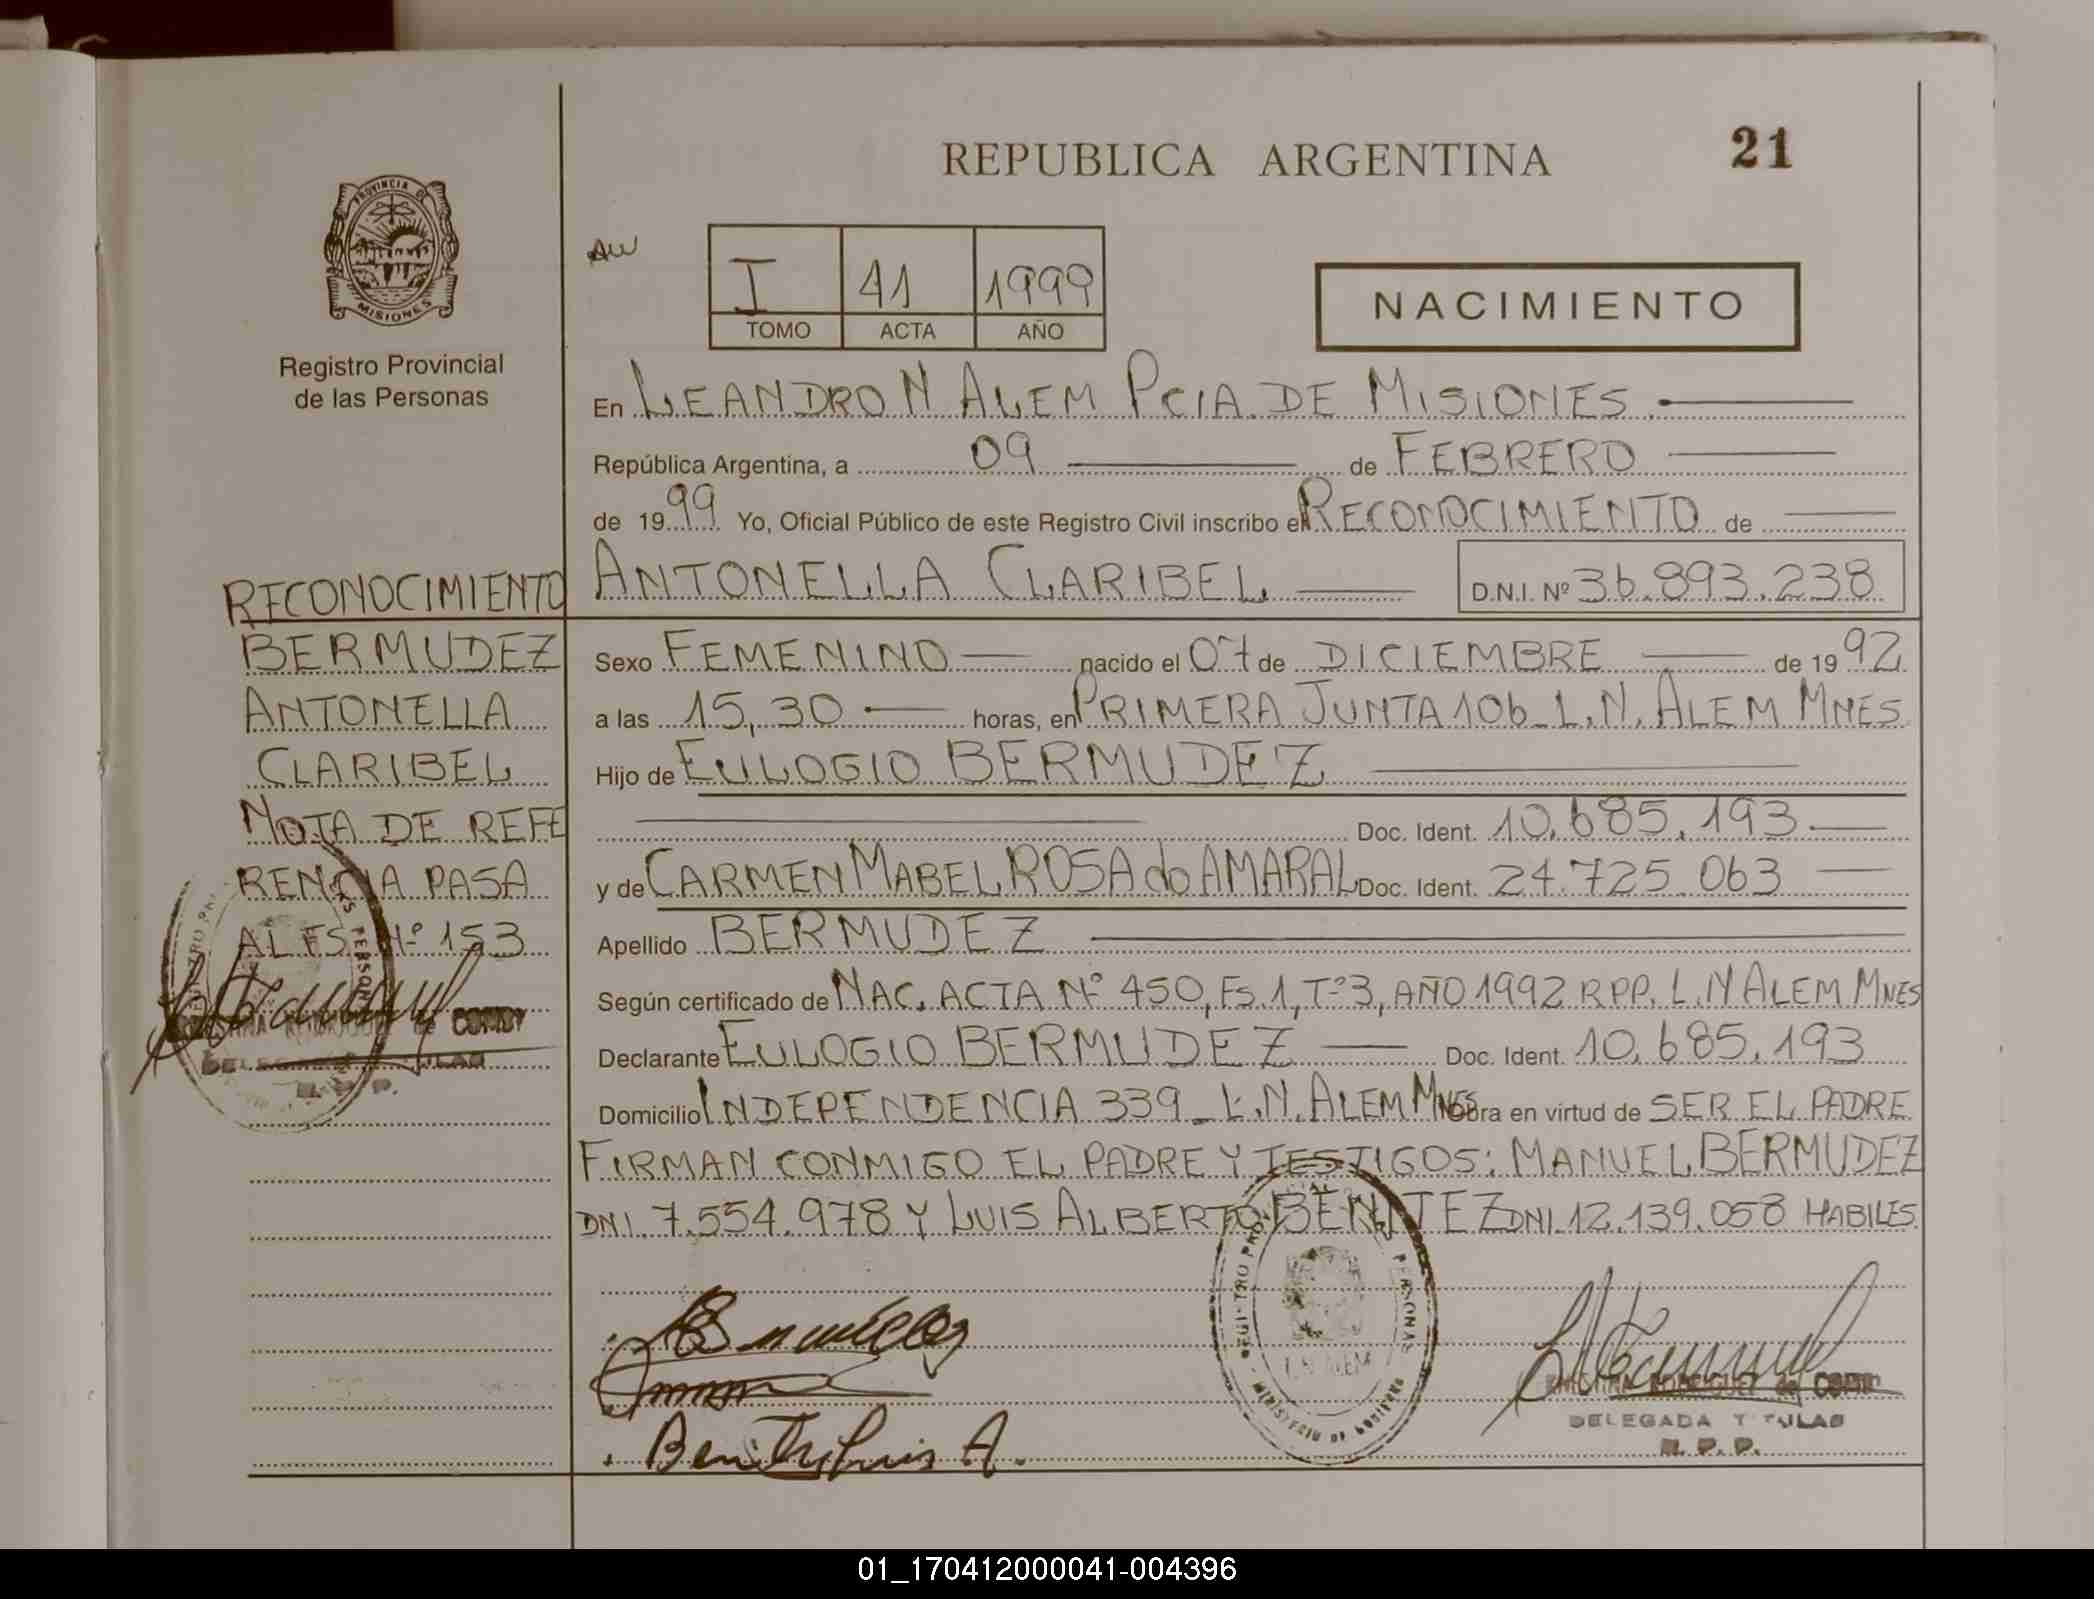 REPUBLICA ARGENTINA
21
PROVINCIA DE
MISIONES
Registro Provincial
de las Personas
I 41 1999
TOMO ACTA AÑO
NACIMIENTO
En LEANDRO N ALEM PCIA. DE MISIONES.
República Argentina, a 09 de FEBRERO
de 1999 Yo, Oficial Público de este Registro Civil inscribo el RECONOCIMIENTO de
ANTONELLA CLARIBEL D.N.I. Nº 36.893.238
Sexo FEMENINO nacido el 07 de DICIEMBRE de 1992
a las 15,30 horas, en PRIMERA JUNTA 106_L.N. ALEM MNES
Hijo de EULOGIO BERMUDEZ
Doc. Ident. 10.685.193
y de CARMEN MABEL ROSA do AMARAL Doc. Ident. 24.725.063
Apellido BERMUDEZ
Según certificado de NAC. ACTA Nº 450, Fs. 1, Tº 3, AÑO 1992 R.P.P. L.N ALEM MNES
Declarante EULOGIO BERMUDEZ Doc. Ident. 10.685.193
Domicilio INDEPENDENCIA 339_L.N. ALEM MNES Obra en virtud de SER EL PADRE
FIRMAN CONMIGO EL PADRE Y TESTIGOS: MANUEL BERMUDEZ
DNI. 7.554.978 Y LUIS ALBERTO BENITEZ DNI. 12.139.058 HABILES.
RECONOCIMIENTO
BERMUDEZ
ANTONELLA
CLARIBEL
NOTA DE REFE
RENCIA PASA
AL FS. Nº 153
Benitez Luis A.
DELEGADA TITULAR
R. P. P.
01_170412000041-004396